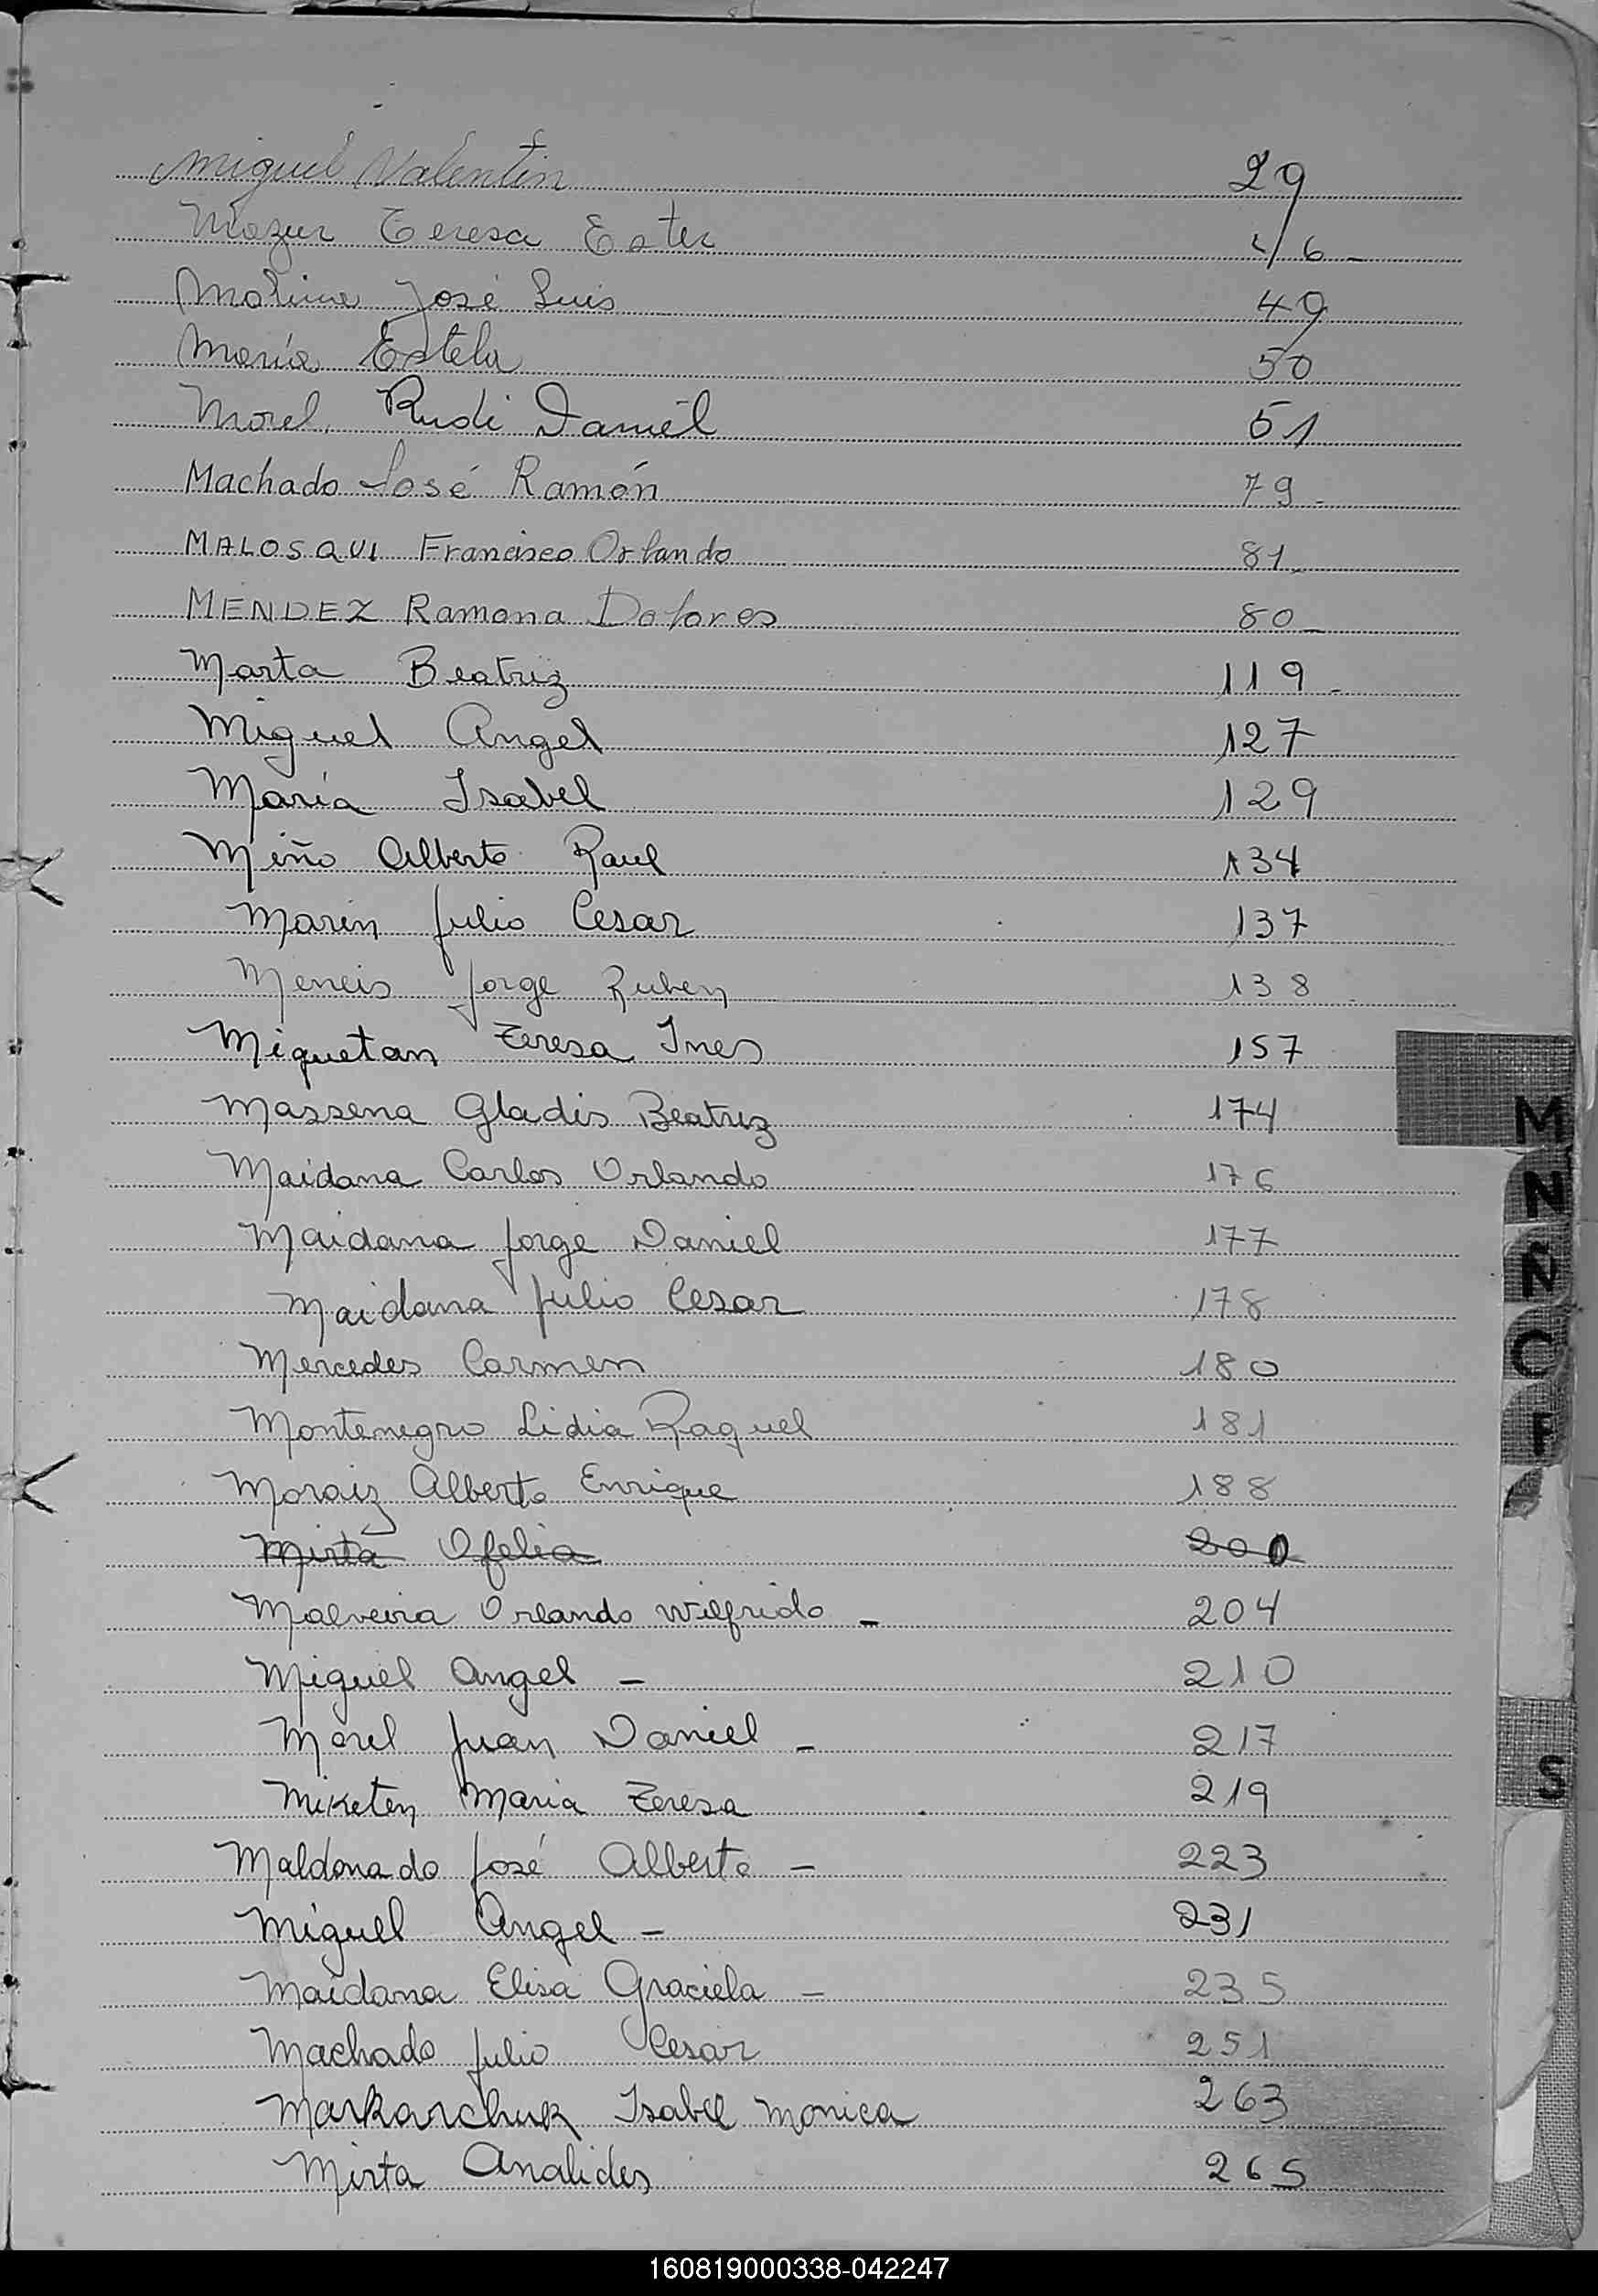 Miguel Valentin 29
Mazur Teresa Ester 46 -
Molina José Luis 49
María Estela 50
Morel, Rudi Daniel 51
Machado José Ramón 79 -
MALOSQUI Francisco Orlando 81 -
MENDEZ Ramona Dolores 80 -
Marta Beatriz 119 -
Miguel Angel 127
María Isabel 129
Miño Alberto Raul 134
Marin Julio Cesar 137
Meneis Jorge Ruben 138
Miquetan Teresa Ines 157
Massena Gladis Beatriz 174
Maidana Carlos Orlando 176
Maidana Jorge Daniel 177
Maidana Julio Cesar 178
Mercedes Carmen 180
Montenegro Lidia Raquel 181
Moraiz Alberto Enrique 188
Mirta Ofelia 200
Malveira Orlando Wilfrido - 204
Miguel Angel - 210
Morel Juan Daniel - 217
Miketen Maria Teresa 219
Maldonado José Alberto - 223
Miguel Angel - 231
Maidana Elisa Graciela - 235
Machado Julio Cesar 251
Markarchuk Isabel Monica 263
Mirta Analides 265
M
N
Ñ
O
P
S
160819000338-042247